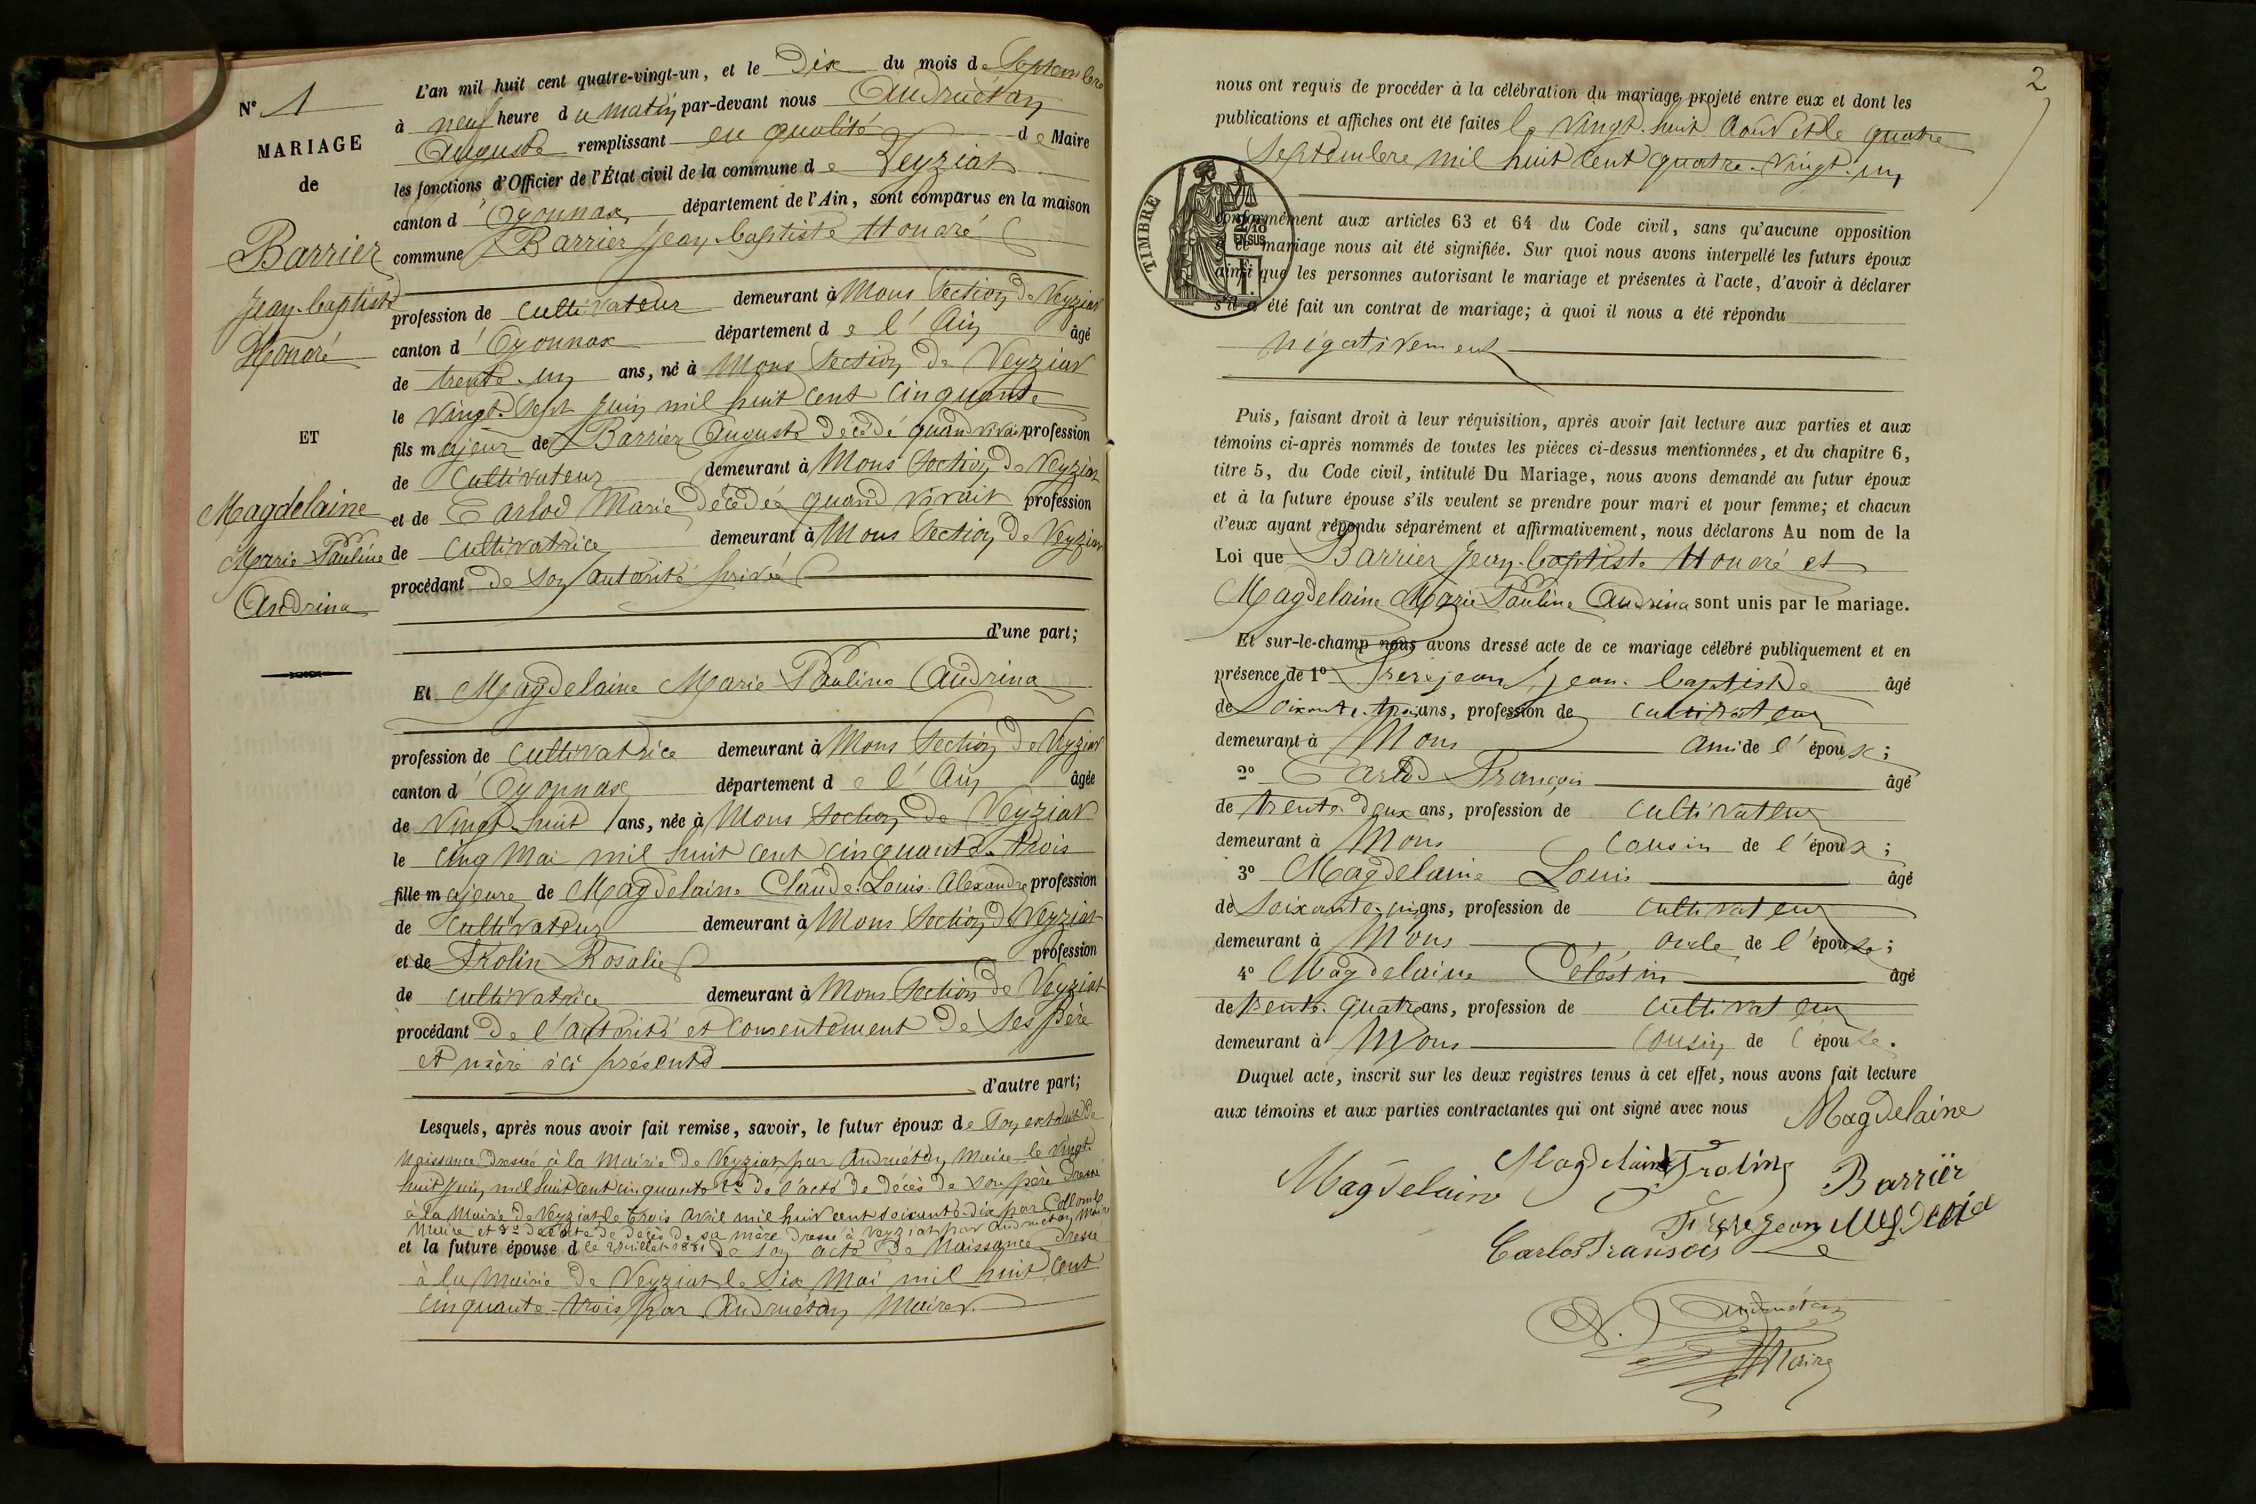 N° 1
MARIAGE
de
Barrier
Jean-baptiste
Honoré
ET
Magdelaine
Marie Pauline
Andrina
L'an mil huit cent quatre-vingt-un, et le Dix du mois de Septembre
à neuf heure du matin par-devant nous Andruétan
Auguste remplissant en qualité de Maire
les fonctions d'Officier de l'État civil de la commune de Veyziat
canton d'Oyonnax département de l'Ain, sont comparus en la maison
commune Barrier Jean-baptiste Honoré
profession de cultivateur demeurant à Mons Section de Veyziat
canton d'Oyonnax département de l'Ain âgé
de trente-un ans, né à Mons Section de Veyziat
le vingt-sept juin mil huit cent cinquante
fils majeur de Barrier Auguste décédé quand vivait profession
de Cultivateur demeurant à Mons Section de Veyziat
et de Carlod Marie décédée quand vivait profession
de cultivatrice demeurant à Mons Section de Veyziat
procédant de son autorité privée
d'une part;
Et Magdelaine Marie Pauline Andrina
profession de cultivatrice demeurant à Mons Section de Veyziat
canton d'Oyonnax département de l'Ain âgée
de vingt-huit ans, née à Mons Section de Veyziat
le cinq Mai mil huit cent cinquante-trois
fille majeure de Magdelaine Claude-Louis-Alexandre profession
de cultivateur demeurant à Mons Section de Veyziat
et de Frolin Rosalie profession
de cultivatrice demeurant à Mons Section de Veyziat
procédant de l'autorité et consentement de ses père
et mère ici présents
d'autre part;
Lesquels, après nous avoir fait remise, savoir, le futur époux de son extrait de
Naissance dressé à la Mairie de Veyziat par Andruétan Maire le vingt
huit juin mil huit cent cinquante de l'acte de décès de son père dressé
à la Mairie de Veyziat le trois avril mil huit cent soixante-dix par Collomb
Maire et de l'acte de décès de sa mère dressé à Veyziat par Andruétan Maire
et la future épouse d le juillet 1881 de son acte de Naissance dressé
à la Mairie de Veyziat le six Mai mil huit cent
cinquante-trois par Andruétan Maire.
2
nous ont requis de procéder à la célébration du mariage projeté entre eux et dont les
publications et affiches ont été faites le vingt-huit Aout et le quatre
Septembre mil huit cent quatre-vingt-un
TIMBRE
2/10
EN SUS
conformément aux articles 63 et 64 du Code civil, sans qu'aucune opposition
à ce mariage nous ait été signifiée. Sur quoi nous avons interpellé les futurs époux
ainsi que les personnes autorisant le mariage et présentes à l'acte, d'avoir à déclarer
s'il a été fait un contrat de mariage; à quoi il nous a été répondu
négativement
Puis, faisant droit à leur réquisition, après avoir fait lecture aux parties et aux
témoins ci-après nommés de toutes les pièces ci-dessus mentionnées, et du chapitre 6,
titre 5, du Code civil, intitulé Du Mariage, nous avons demandé au futur époux
et à la future épouse s'ils veulent se prendre pour mari et pour femme; et chacun
d'eux ayant répondu séparément et affirmativement, nous déclarons Au nom de la
Loi que Barrier Jean-baptiste Honoré et
Magdelaine Marie Pauline Andrina sont unis par le mariage.
Et sur-le-champ nous avons dressé acte de ce mariage célébré publiquement et en
présence de 1° Frerejean Jean-baptiste âgé
de Soixante-trois ans, profession de cultivateur
demeurant à Mons ami de l'époux;
2° Carlod François âgé
de trente-deux ans, profession de cultivateur
demeurant à Mons Cousin de l'époux;
3° Magdelaine Louis âgé
de Soixante-un ans, profession de cultivateur
demeurant à Mons oncle de l'épouse;
4° Magdelaine Célestin âgé
de trente-quatre ans, profession de cultivateur
demeurant à Mons Cousin de l'épouse.
Duquel acte, inscrit sur les deux registres tenus à cet effet, nous avons fait lecture
aux témoins et aux parties contractantes qui ont signé avec nous Magdelaine
Magdelaine Magdelaine Frolin Barrier
Frerejean
Carlod Fransois
Andruétan
Maire